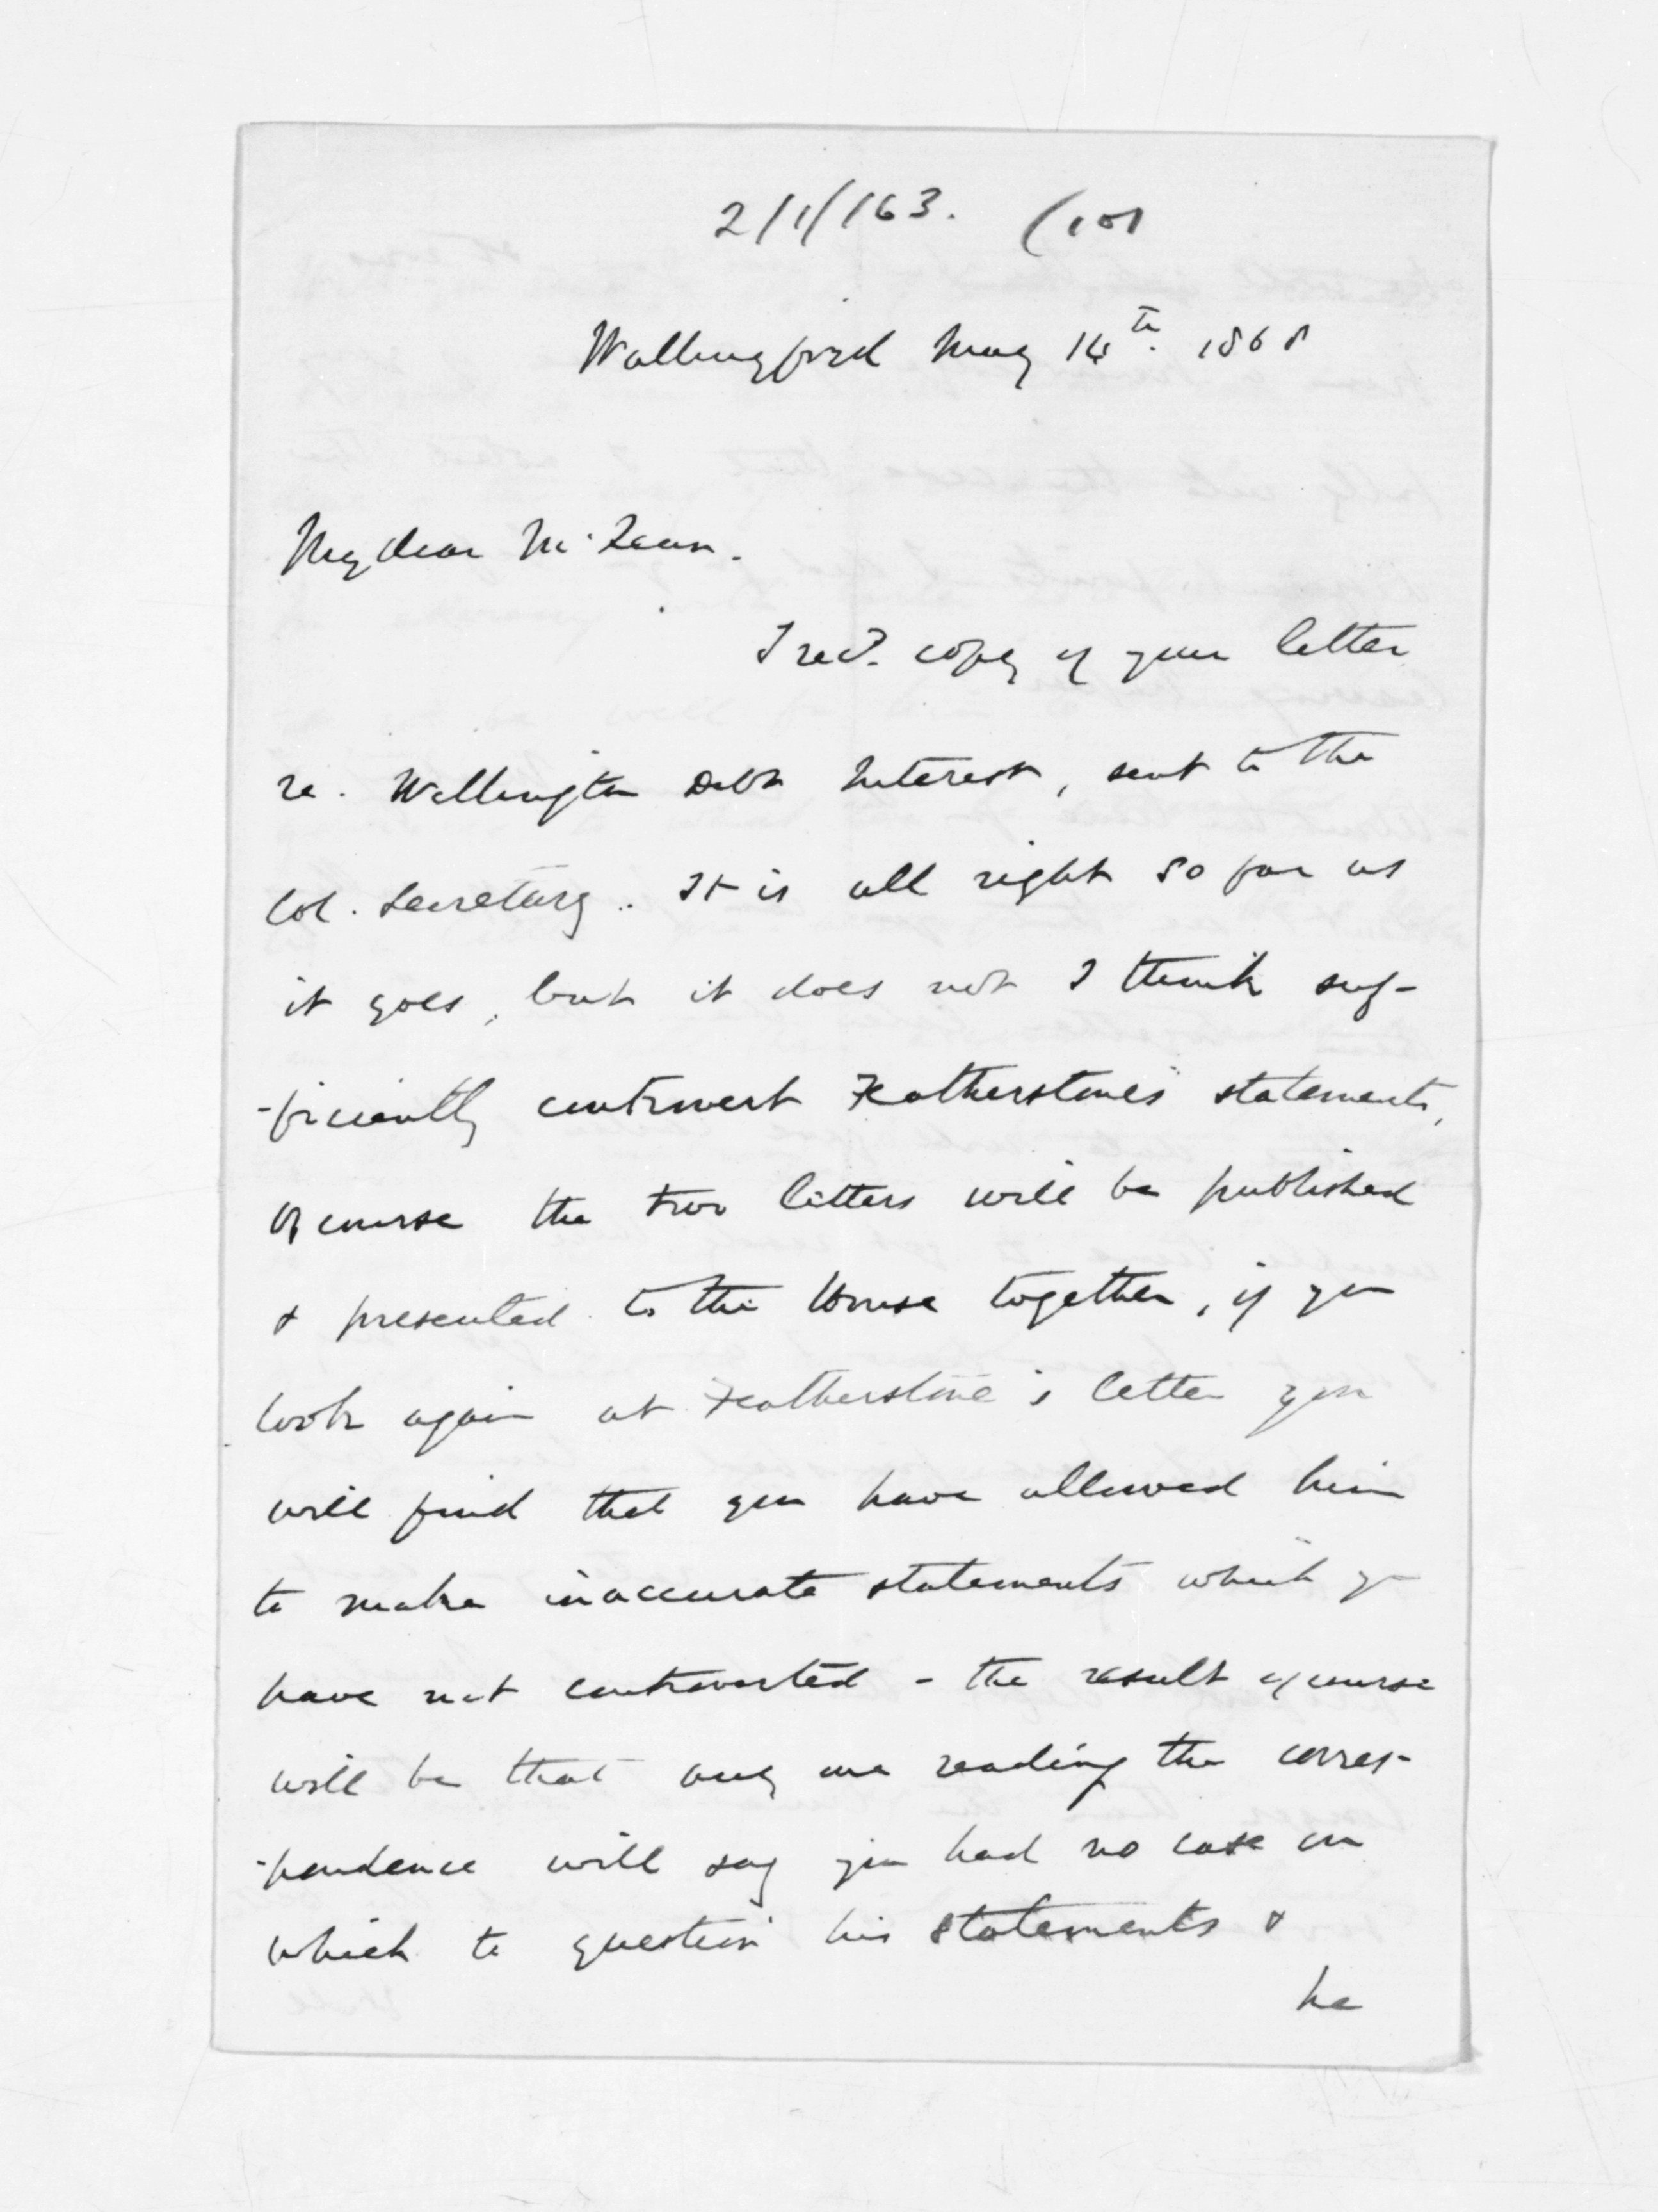 2/1/163. (101
Wallingford May 14th. 1868
My dear McLean.
I recd. copy of your letter
re. Wellington Debt Interest, sent to the
Col. Secretary.. It is all right so far as
it goes, but it does not I think suf-
-ficiently controvert Featherstone's statements,
of course the two letters will be published
& presented to the House together, if you
look again at Featherstone's letter you
will find that you have allowed him
to make inaccurate statements which yo
have not controverted - the result of course
will be that any one reading the corres-
-pondence will say you had no case on
which to question his statements &
he